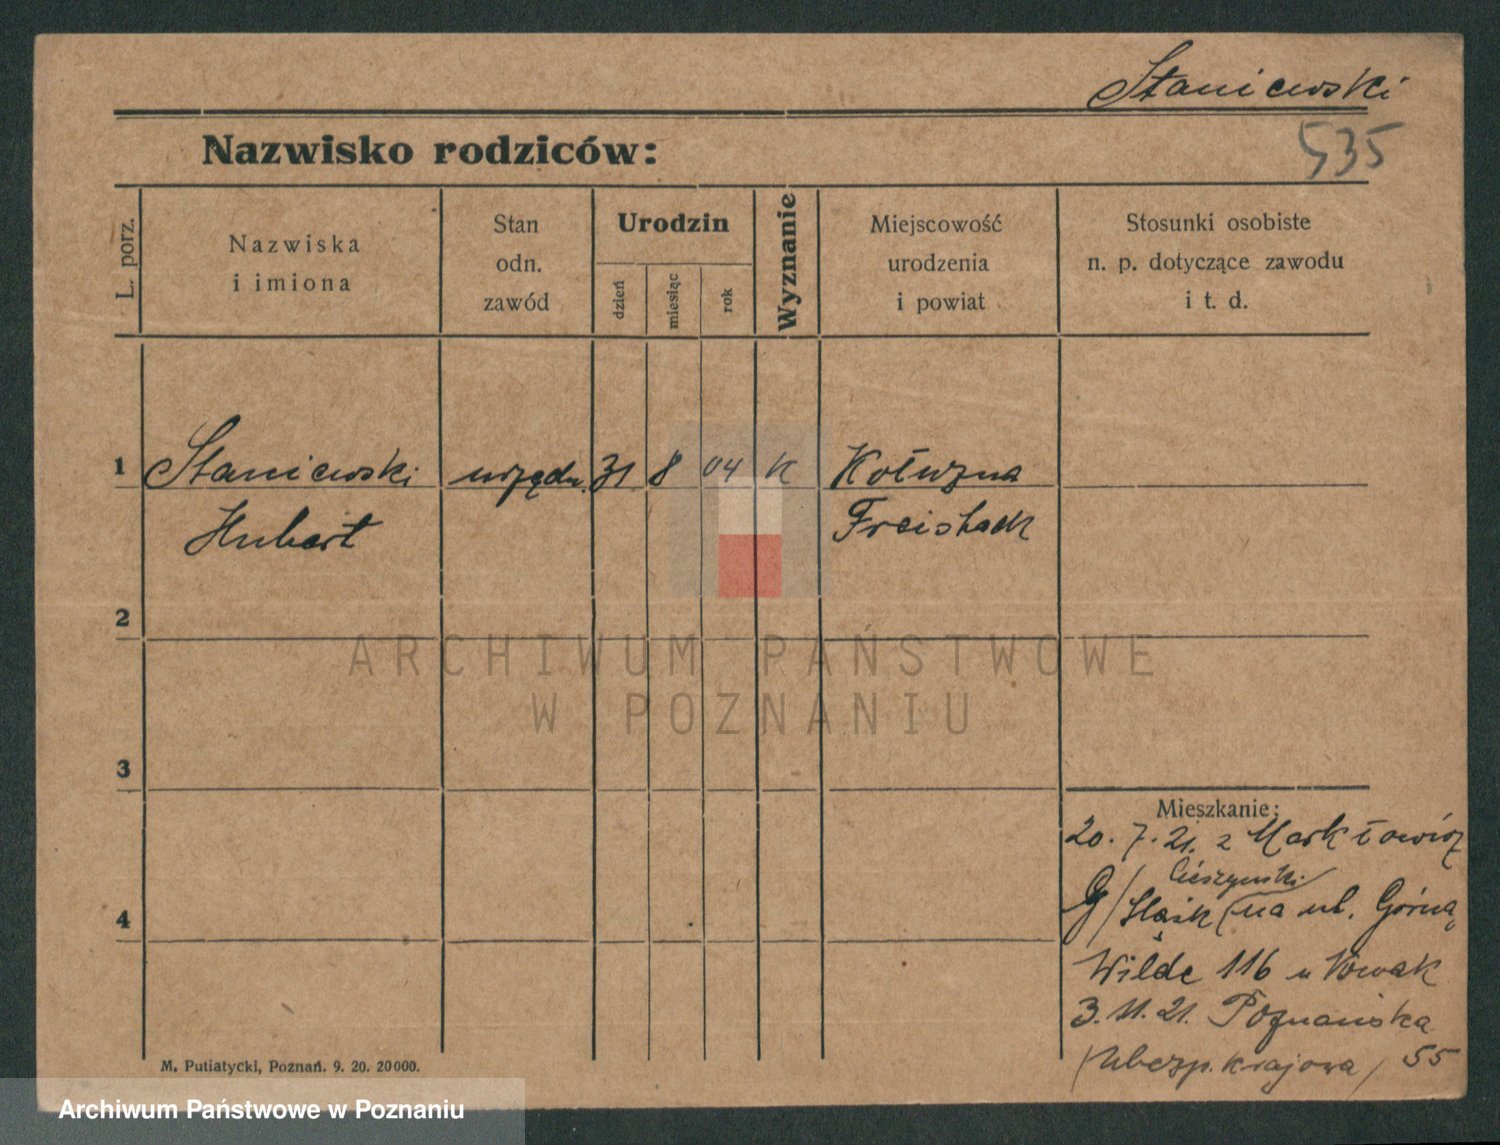 Staniewski
535
Nazwisko rodziców:
L. porz.
Nazwiska
i imiona
Stan
odn.
zawód
Urodzin
dzień
miesiąc
rok
Wyznanie
Miejscowość
urodzenia
i powiat
Stosunki osobiste
n. p. dotyczące zawodu
i t. d.
1 Staniewski urzędn. 31 8 04 K
Hubert
2
3
4
Mieszkanie:
20. 7. 21. z
Cieszyński
G/Śląsk (na ul. Górną
Wildę 116 u Nowak
3. 11. 21. Poznańska
(Ubezp. krajowa) 55
M. Putiatycki, Poznań. 9. 20. 20000.
ARCHIWUM PAŃSTWOWE
W POZNANIU
Archiwum Państwowe w Poznaniu